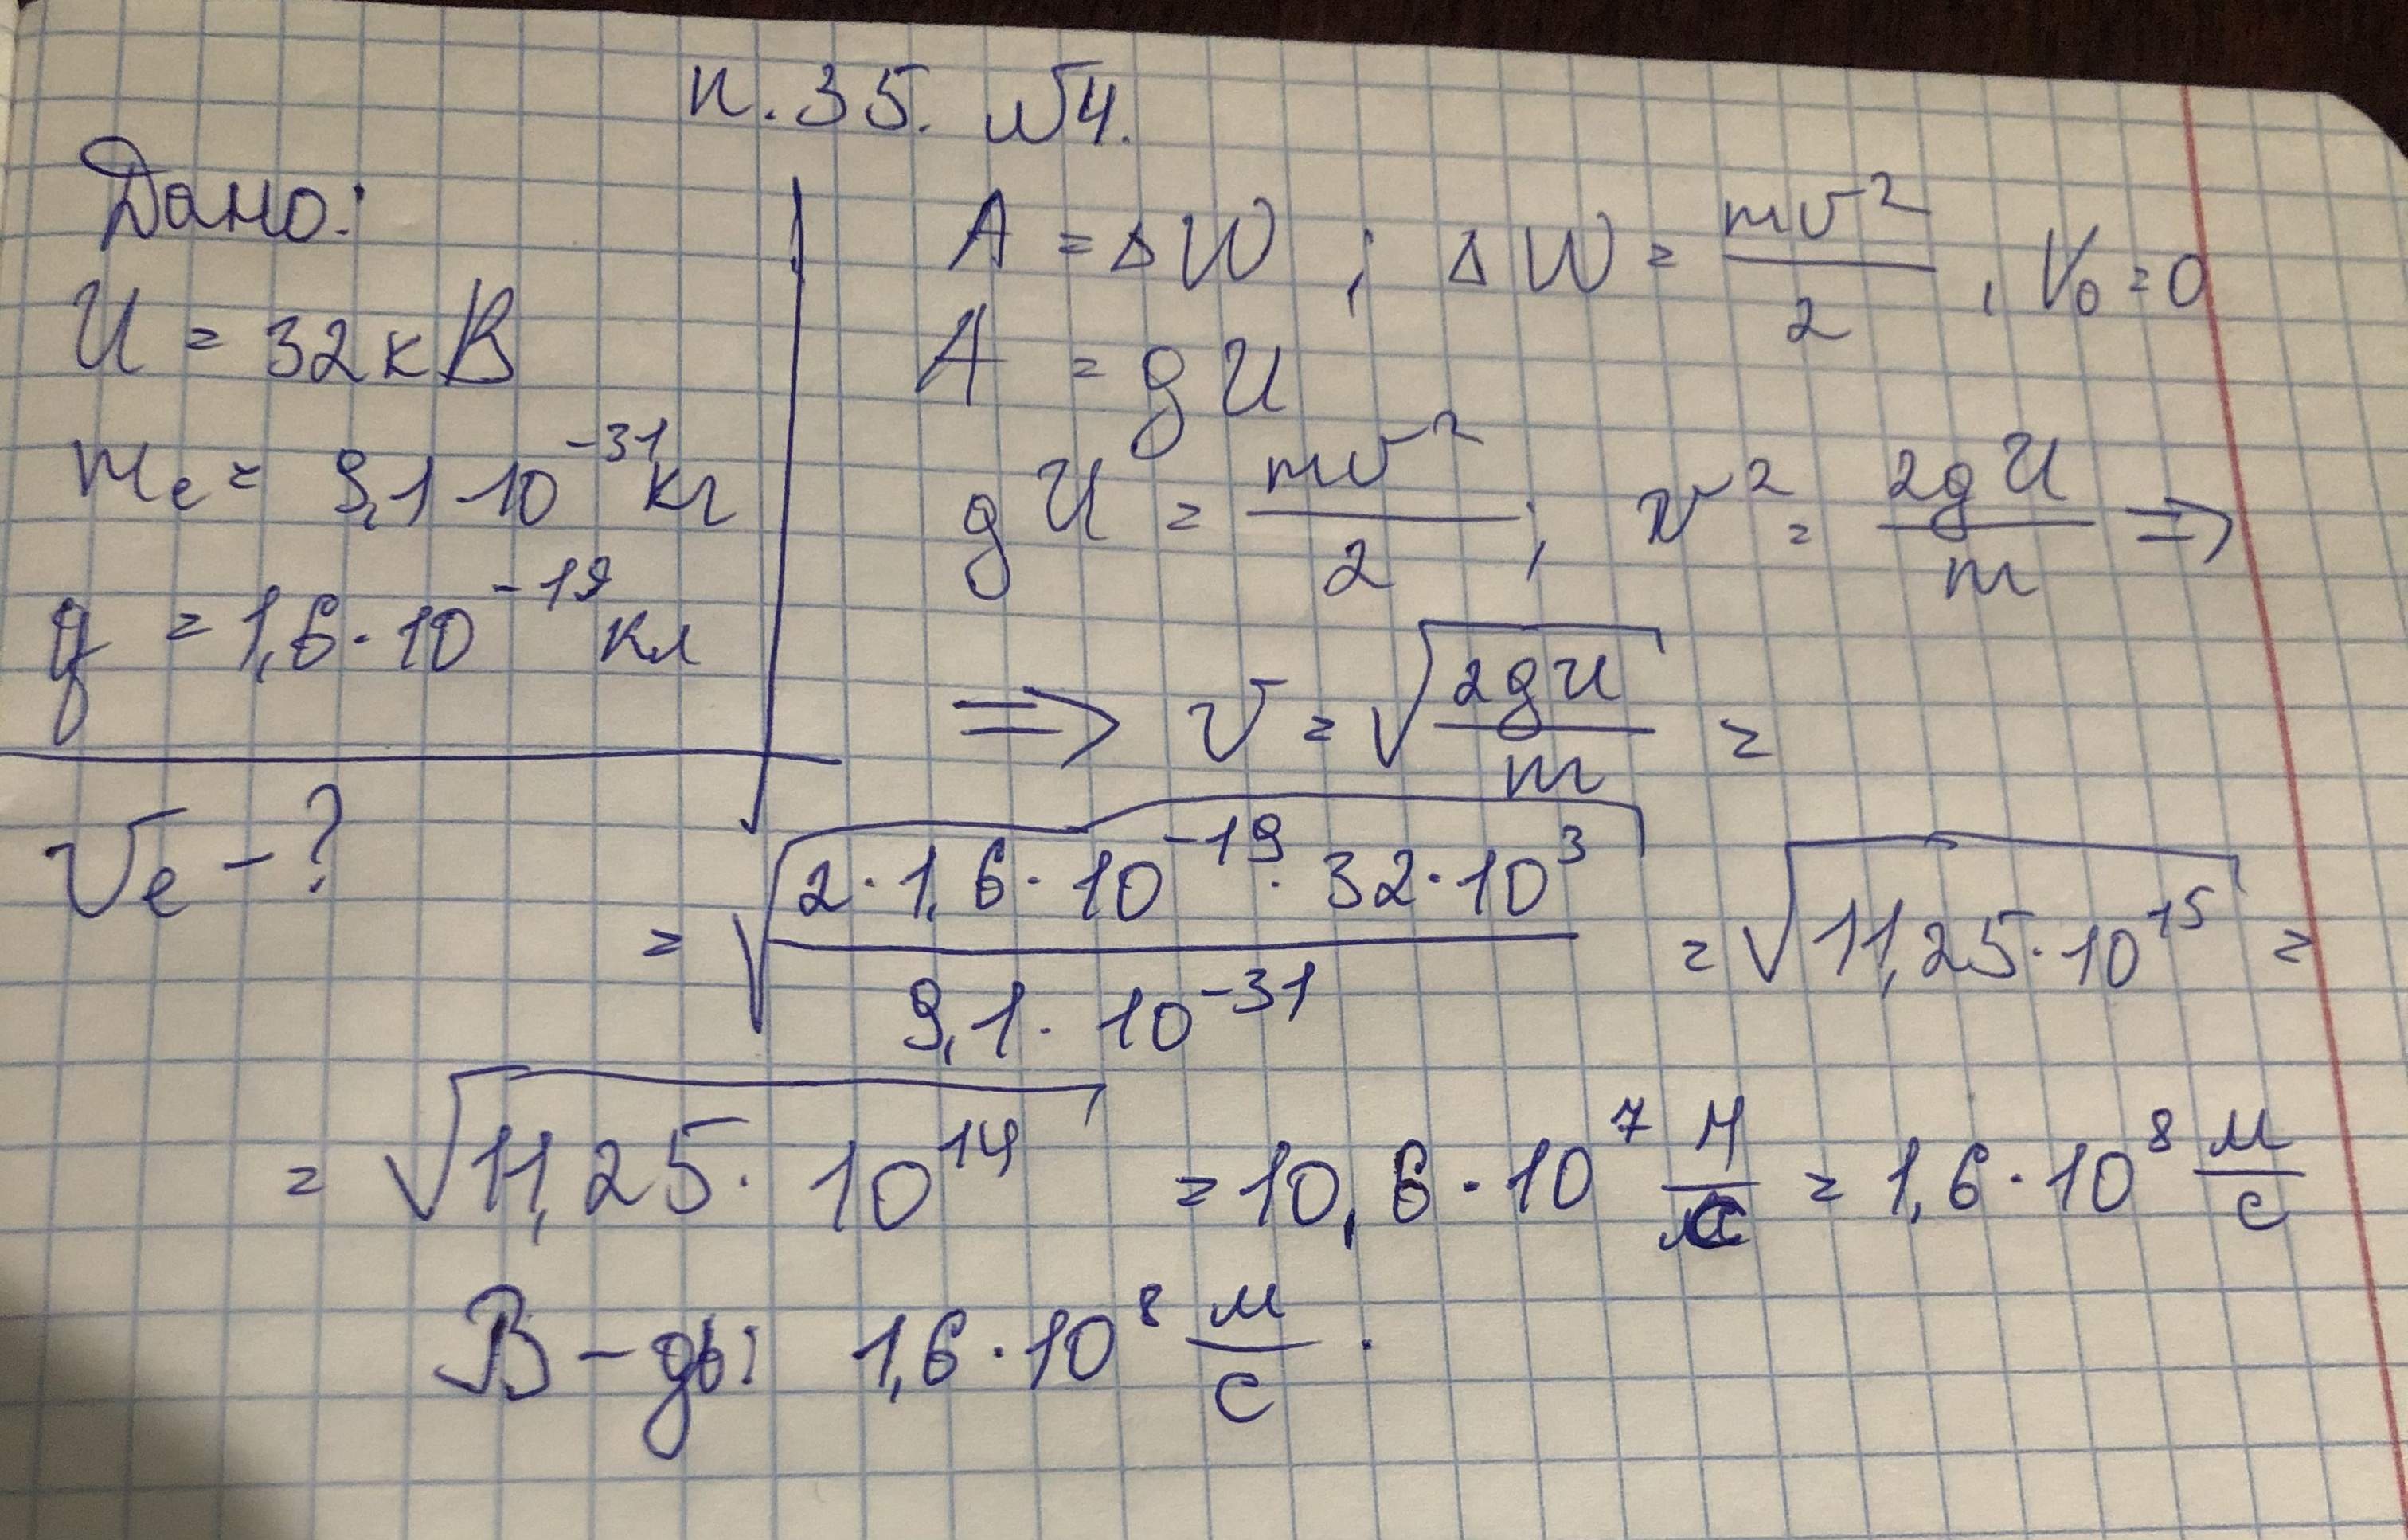 п.35. №4.
Дано:
U = 32кВ
mₑ = 9,1·10⁻³¹кг
q = 1,6·10⁻¹⁹Кл
vₑ - ?
A = ΔW ; ΔW = mv²/2 , V₀ = 0
A = qU
qU = mv²/2 ; v² = 2qU/m ⇒
⇒ v = √(2qU/m) =
= √(2·1,6·10⁻¹⁹·32·10³/9,1·10⁻³¹) = √(11,25·10¹⁵) =
= √(11,25·10¹⁴) = 10,6·10⁷ м/с = 1,6·10⁸ м/с
В-дь: 1,6·10⁸ м/с.